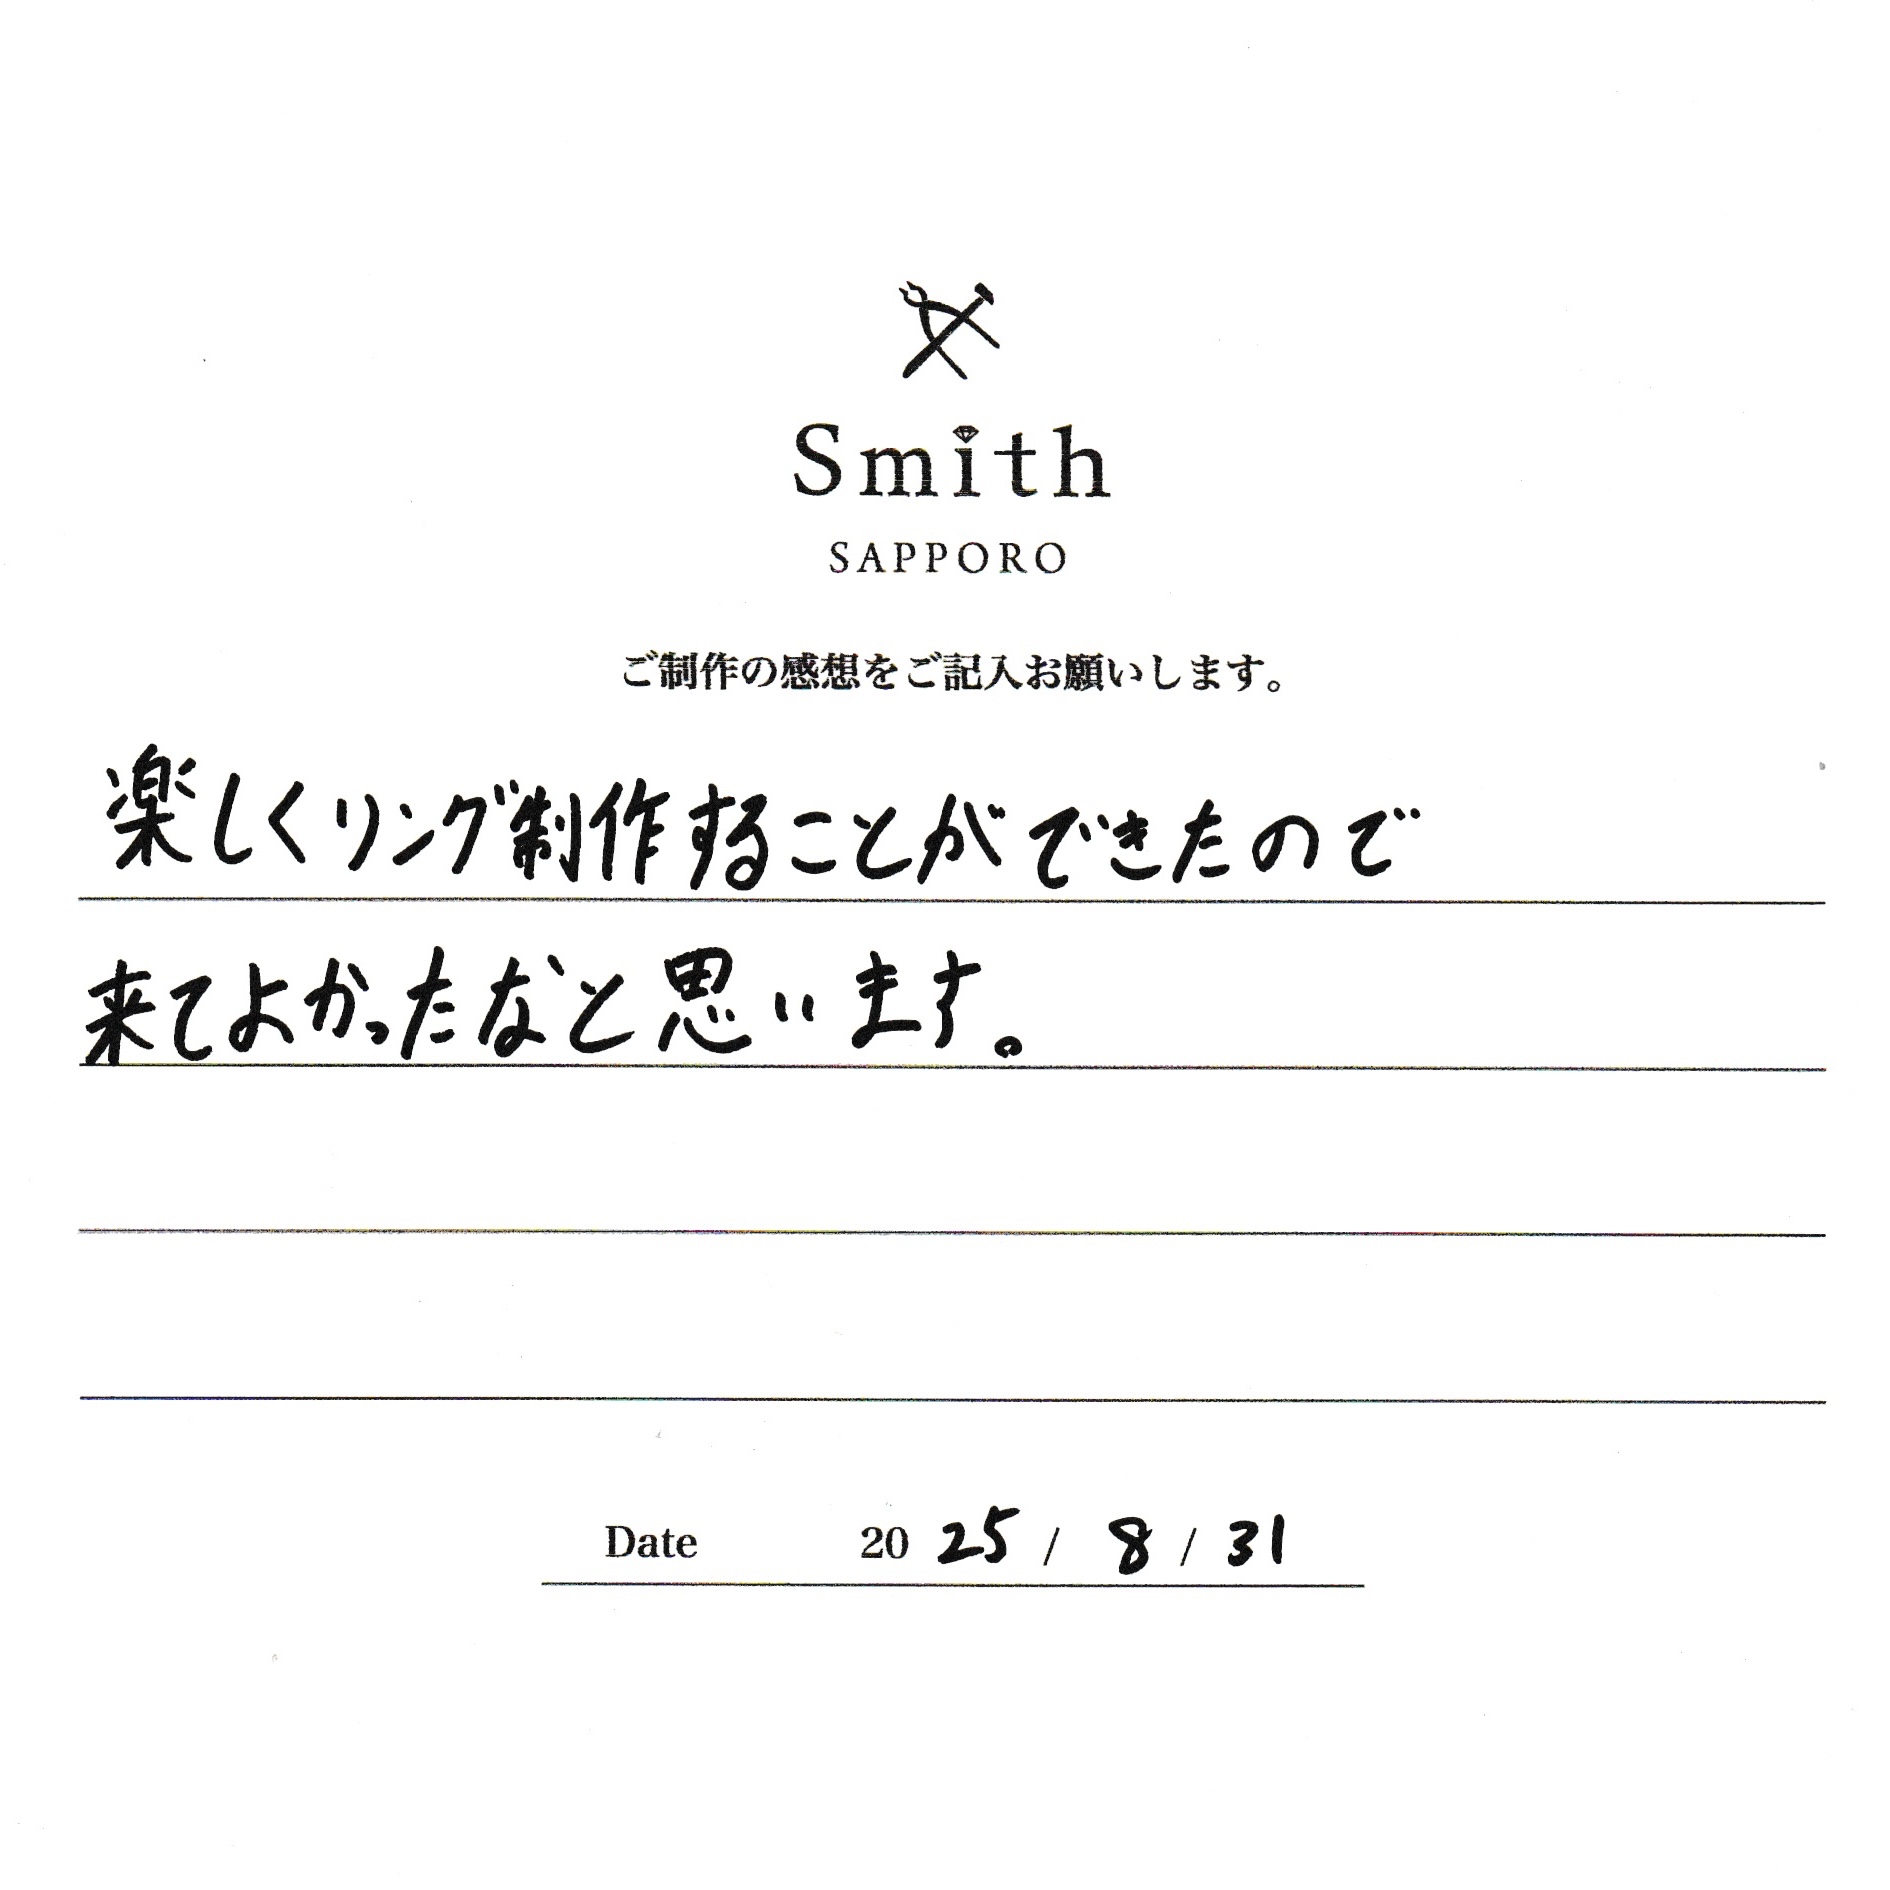 Smith
SAPPORO
ご制作の感想をご記入お願いします。
楽しくリング制作することができたので
来てよかったなと思います。
Date 2025 / 8 / 31